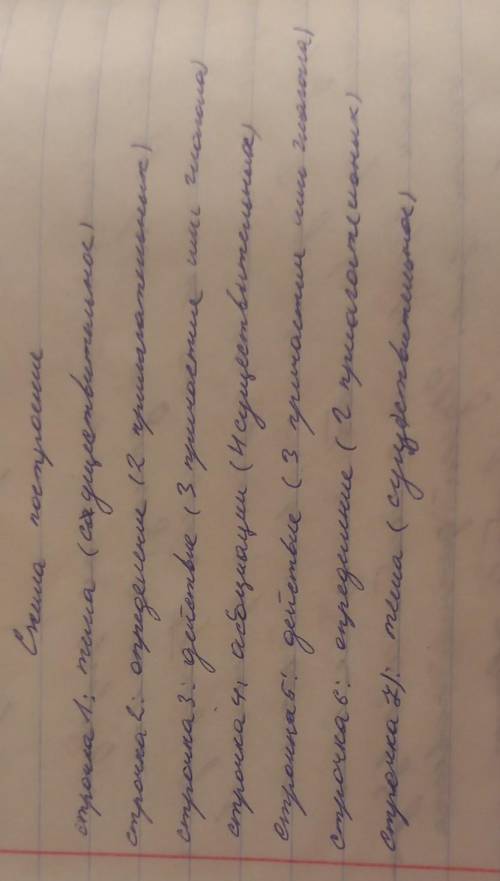 Схема построение
строчка 1: тема (существительное)
строчка 2: определение (2 прилагательных)
строчка 3: действие (3 причастия или глагола)
строчка 4: асбоциации (4 существительных)
строчка 5: действие (3 причастия или глагола)
строчка 6: определение (2 прилагательных)
строчка 7): тема (существительное)